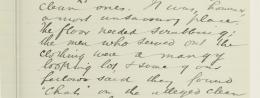 clean ones. It was, however,
a most unsavoury place,
the floor needed scrubbing;
the men who served out the
clothing were a mangy
looking lot & some of our
fellows said they found
"Chats" on the alleged clean